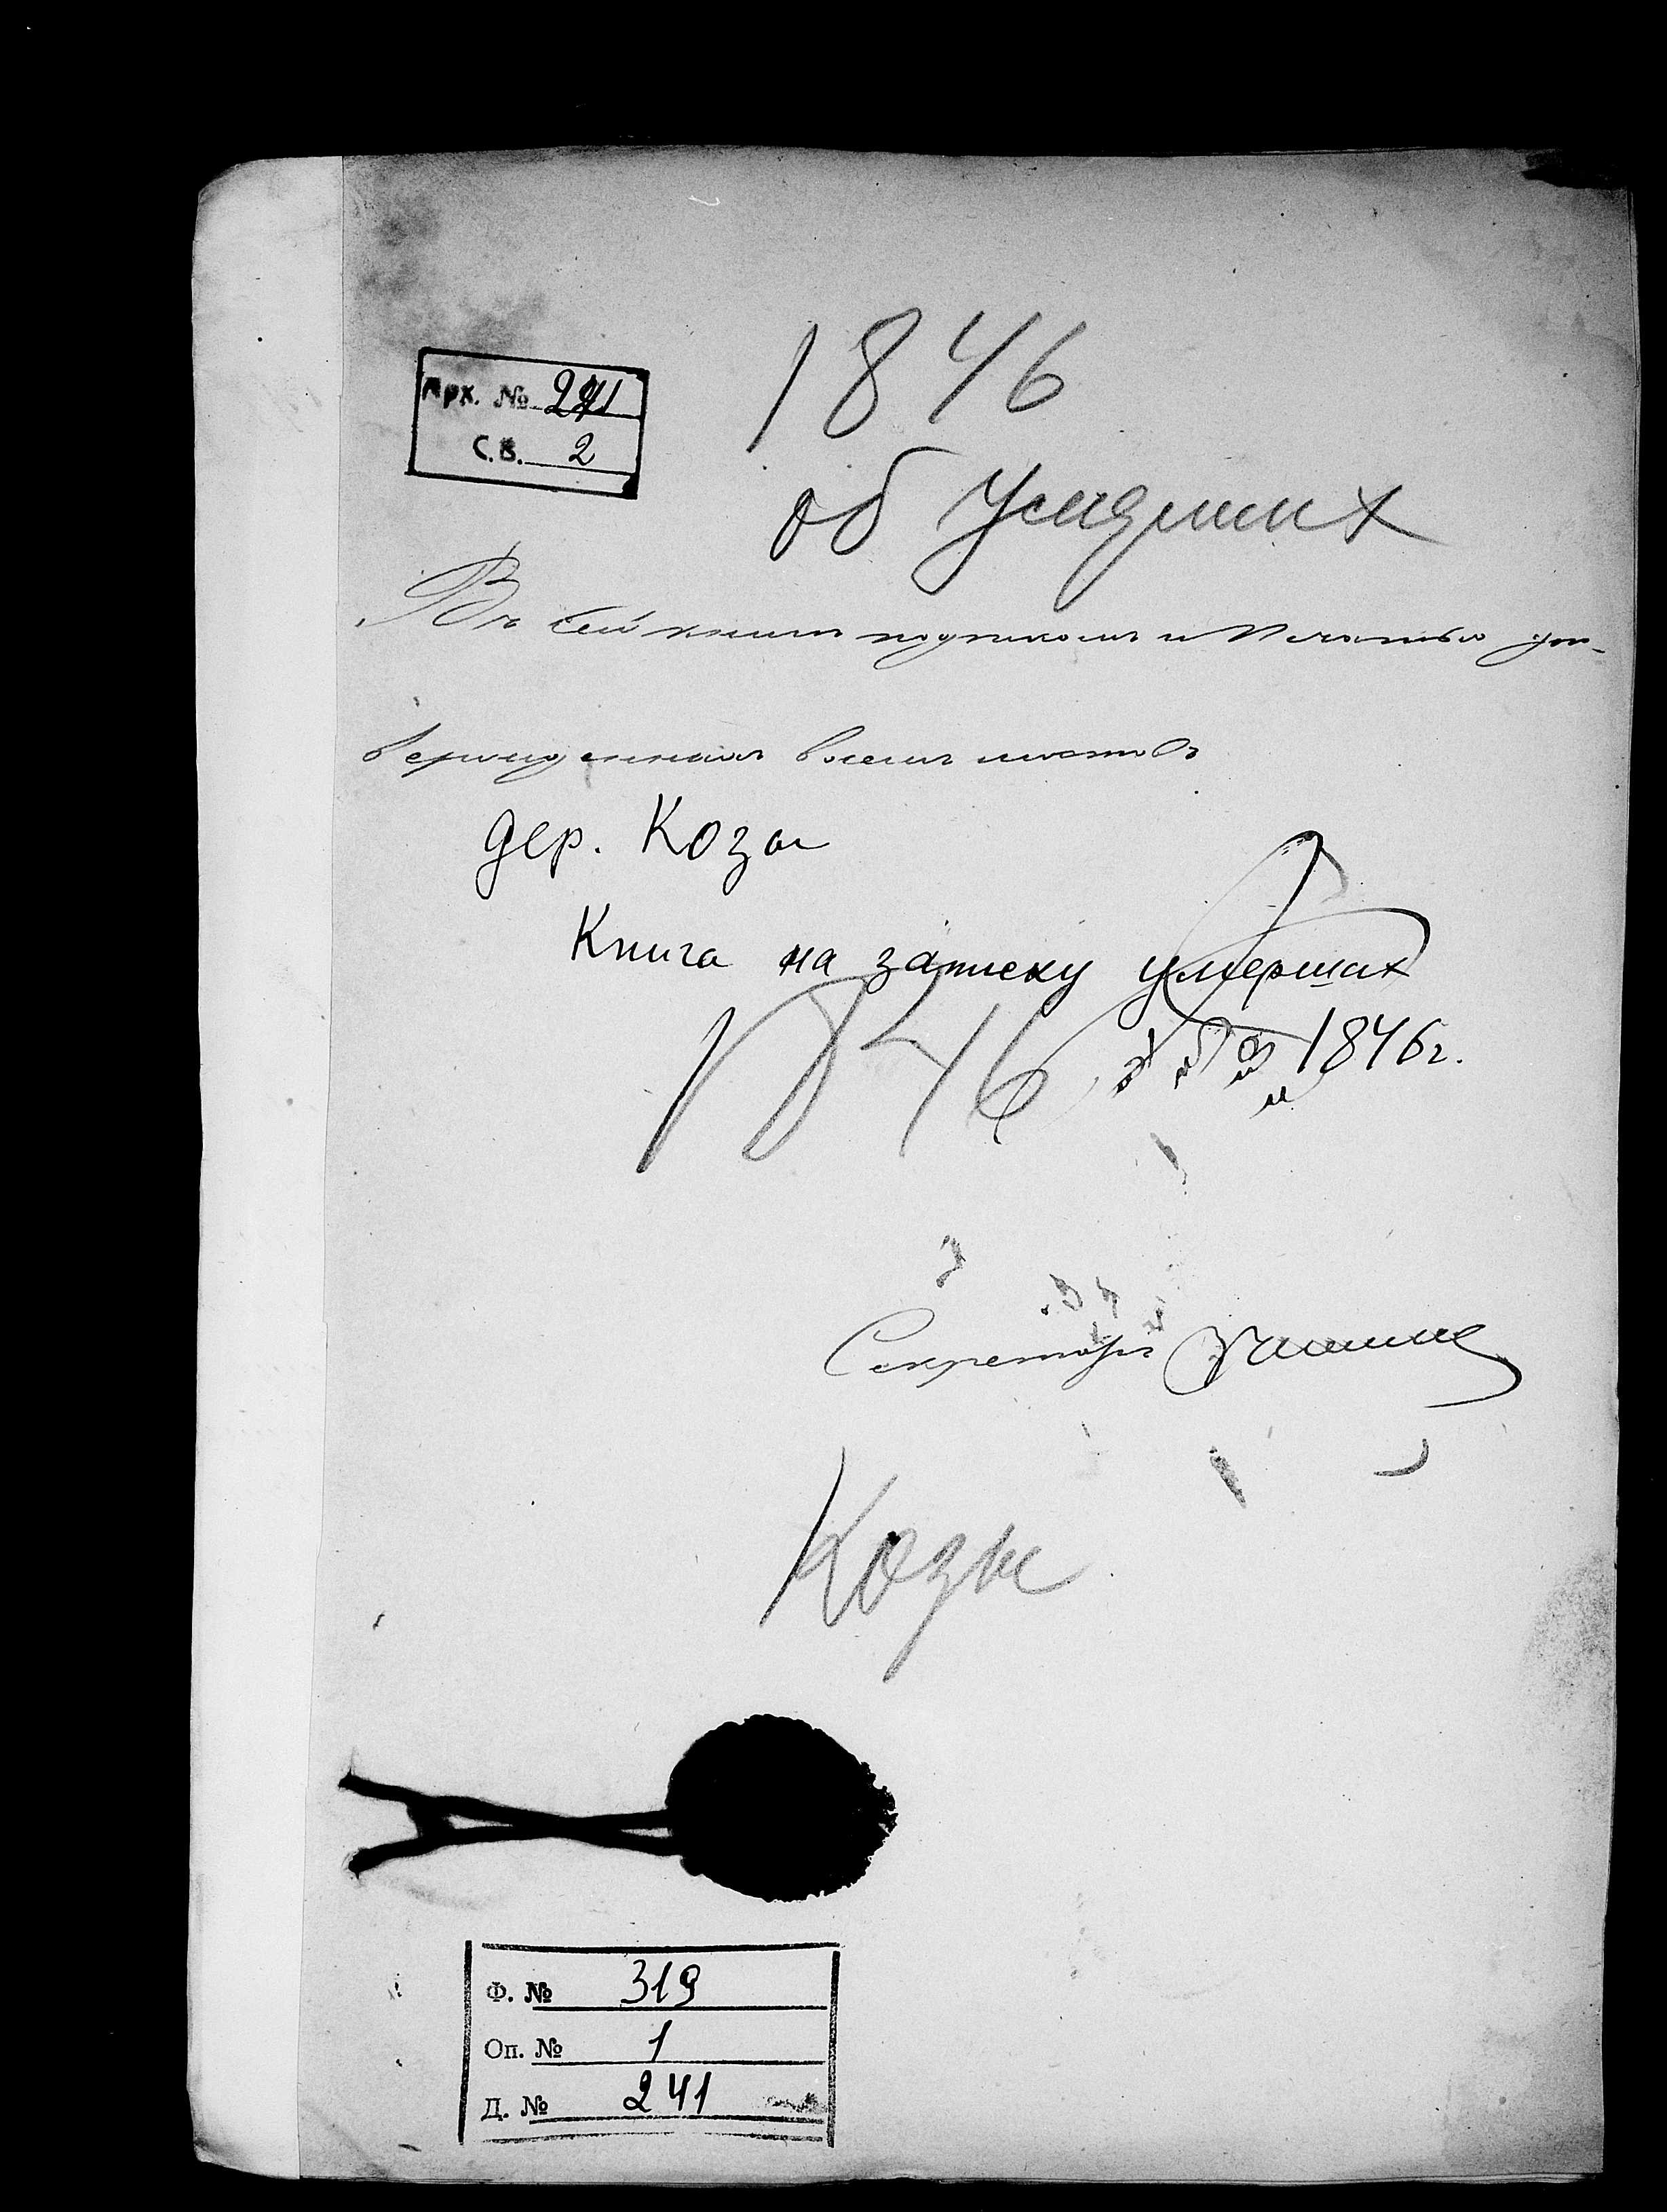 1846
Арх. № 241
С.В. 2
об Умерших
Въ сей книгѣ подписомъ и Печатью ут-
вержденная восемь листовъ
дер. Козы
Книга на записку умерших
1846г.
1846
Секретарь
Козы
Ф. № 319
Оп. № 1
Д. № 241